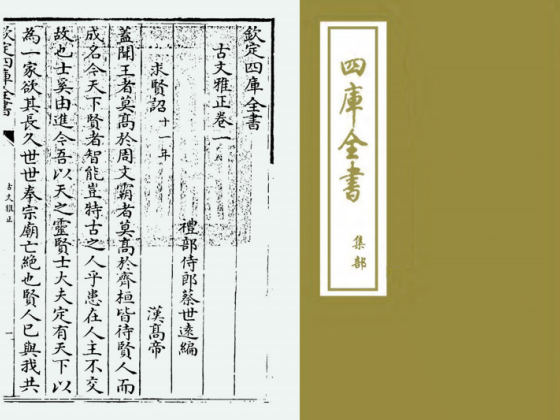 欽定四庫全書
古文雅正卷一
禮部侍郎蔡世遠編
求賢詔十一年 漢高帝
蓋聞王者莫高於周文霸者莫高於齊桓皆待賢人而
成名今天下賢者智能豈特古之人乎患在人主不交
故也士奚由進今吾以天之靈賢士大夫定有天下以
為一家欲其長久世世奉宗廟亡絶也賢人已與我共
欽定四庫全書
古文雅正
四庫全書
集部